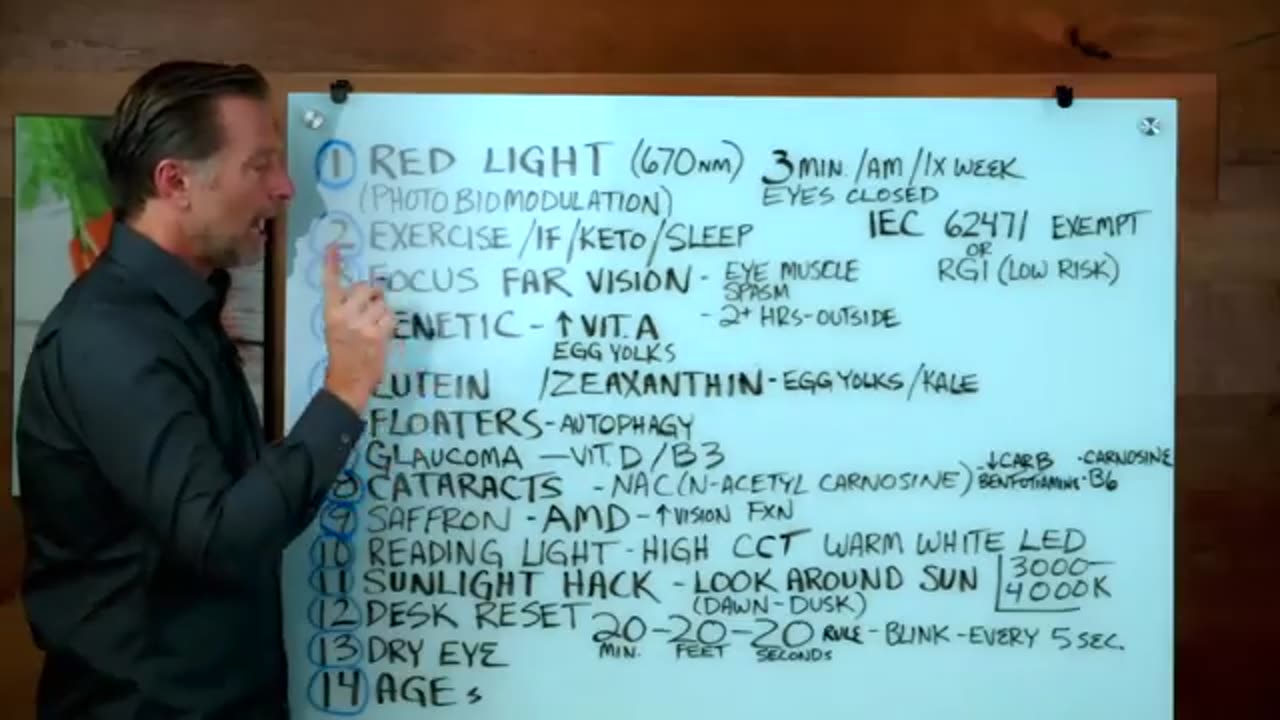 1 RED LIGHT (670NM) 3 MIN./AM/1X WEEK
(PHOTOBIOMODULATION) EYES CLOSED
IEC 62471 EXEMPT
OR
RG1 (LOW RISK)
2 EXERCISE/IF/KETO/SLEEP
FOCUS FAR VISION - EYE MUSCLE
SPASM
- 2+ HRS-OUTSIDE
ENETIC - ↑ VIT. A
EGG YOLKS
LUTEIN /ZEAXANTHIN - EGG YOLKS/KALE
FLOATERS - AUTOPHAGY
GLAUCOMA — VIT. D/B3
8 CATARACTS - NAC (N-ACETYL CARNOSINE) -↓CARB -CARNOSINE
BENFOTIAMINE -B6
9 SAFFRON - AMD - ↑VISION FXN
10 READING LIGHT - HIGH CCT WARM WHITE LED
3000-
4000K
11 SUNLIGHT HACK - LOOK AROUND SUN
(DAWN-DUSK)
12 DESK RESET 20-20-20 RULE - BLINK - EVERY 5 SEC.
MIN. FEET SECONDS
13 DRY EYE
14 AGEs